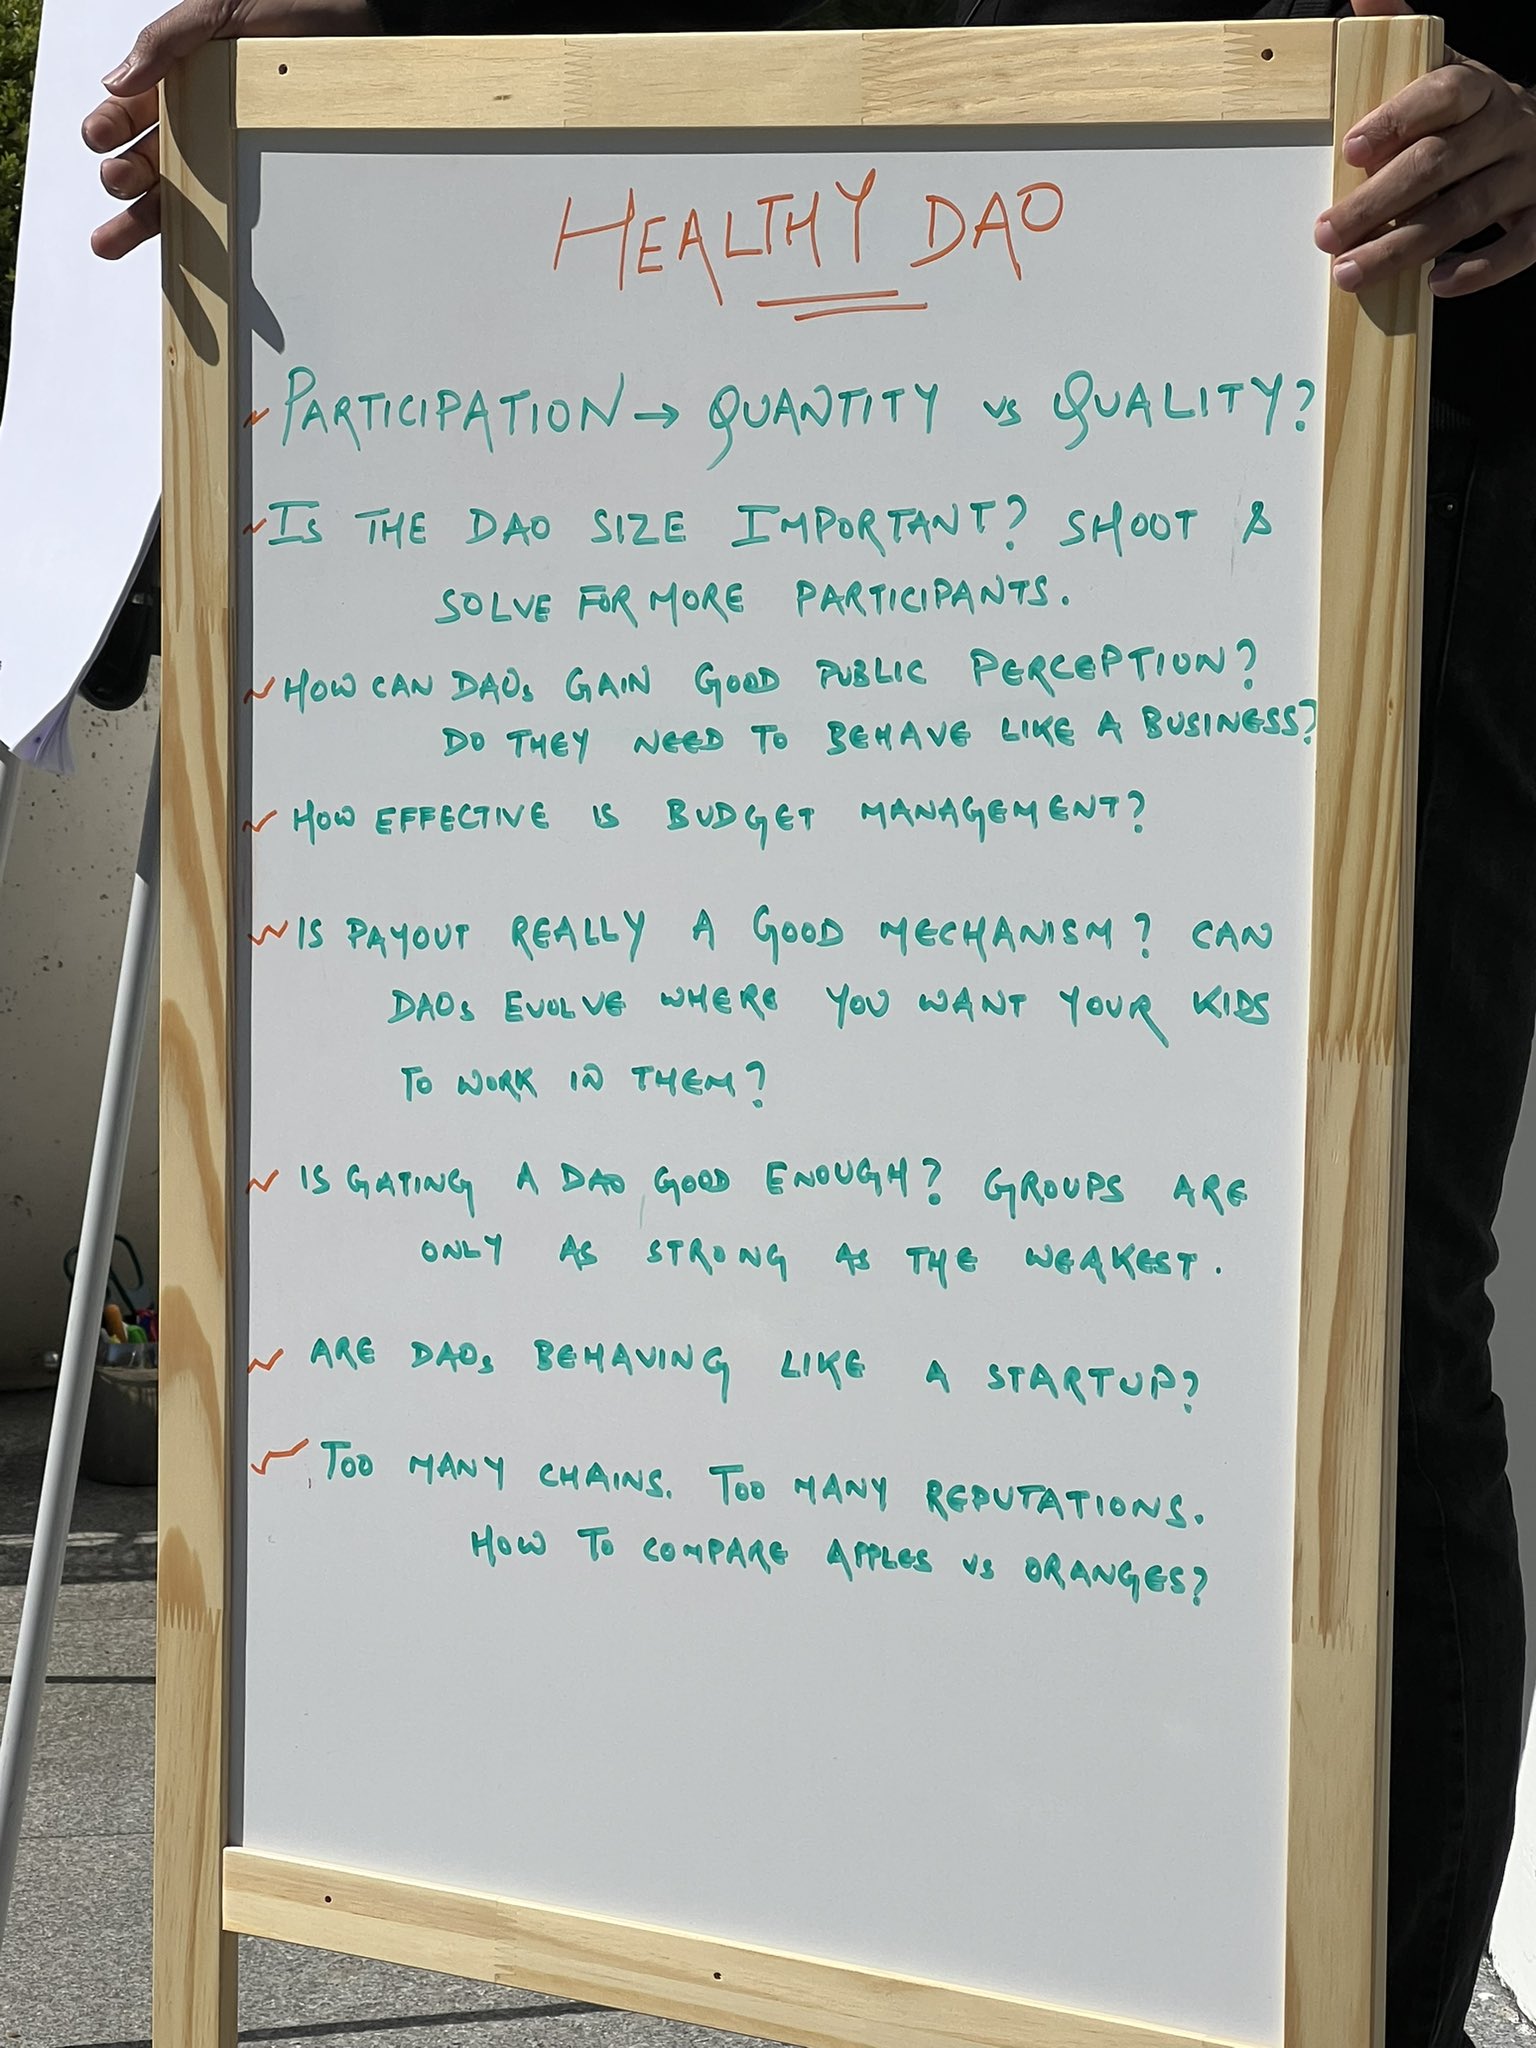 HEALTHY DAO
PARTICIPATION → QUANTITY vs QUALITY?
IS THE DAO SIZE IMPORTANT? SHOOT &
SOLVE FOR MORE PARTICIPANTS.
HOW CAN DAOs GAIN GOOD PUBLIC PERCEPTION?
DO THEY NEED TO BEHAVE LIKE A BUSINESS?
HOW EFFECTIVE IS BUDGET MANAGEMENT?
IS PAYOUT REALLY A GOOD MECHANISM? CAN
DAOs EVOLVE WHERE YOU WANT YOUR KIDS
TO WORK IN THEM?
IS GATING A DAO GOOD ENOUGH? GROUPS ARE
ONLY AS STRONG AS THE WEAKEST.
ARE DAOs BEHAVING LIKE A STARTUP?
TOO MANY CHAINS. TOO MANY REPUTATIONS.
HOW TO COMPARE APPLES vs ORANGES?